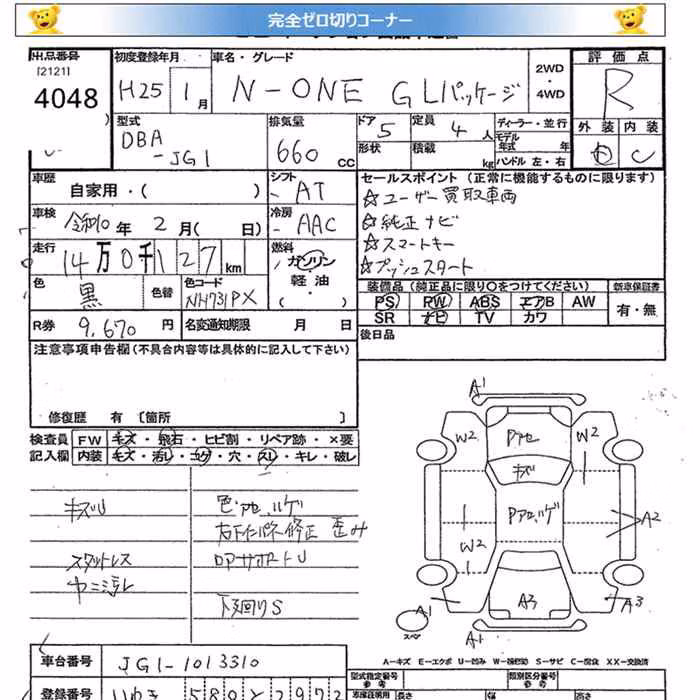 完全ゼロ切りコーナー
出品番号 初度登録年月 車名・グレード 評価点
[2121]
4048 H25 1月 N-ONE GLパッケージ 2WD・4WD R
型式 排気量 ドア 5 定員 4人 ディーラー・並行 外装 内装
DBA-JG1 660cc 形状 積載 kg モデル年式 年 C
ハンドル 左・右
車歴 自家用・( ) シフト AT セールスポイント(正常に機能するものに限ります)
☆ユーザー買取車両
車検 令和10年 2月( 日) 冷房 AAC ☆純正ナビ
☆スマートキー
走行 14万0千127km 燃料 ガソリン 軽油 ・( ) ☆プッシュスタート
色 黒 色替 色コード NH731PX 装備品(純正品に限り○をつけてください) 新車保証書
PS RW ABS エアB AW 有・無
SR ナビ TV カワ
R券 9,670円 名変通知期限 月 日 後日品
注意事項申告欄(不具合内容等は具体的に記入して下さい)
修復歴 有 [箇所 ]
検査員 FW キズ・飛石・ヒビ割・リペア跡・×要
記入欄 内装 キズ・汚レ・コゲ・穴・スレ・キレ・破レ
キズU
スタットレス
ヤニ汚レ
下廻りS
A1
W2 W2
キズ
A2
W2
A1 A3 A3
スペア A1
A-キズ E-エクボ U-凹み W-補修跡 S-サビ C-腐食 XX-交換済
車台番号 JG1-1013310
型式指定番号 類別区分番号
参考 参考
登録番号 いわき 580 と 2972
車庫証明用 長さ 幅 高さ